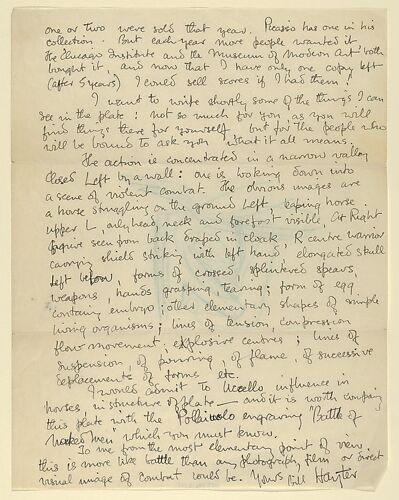 one or two were sold that year. Picasso has one in his
collection. But each year more people wanted it
the Chicago Institute and the Museum of Modern Art both
bought it, and now that I have only one copy left
(after 5 years) I could sell scores if I had them!
I want to write shortly some of the things I can
see in the plate: not so much for you as you will
find things there for yourself, but for the people who
will be bound to ask you what it all means.
The action is concentrated in a narrow valley
closed Left by a wall: one is looking down into
a scene of violent combat. The obvious images are
a horse struggling on the ground Left, leaping horse
upper L, only head, neck and forefoot visible, At Right
figure seen from back draped in cloak, R centre warrior
carrying shield striking with left hand, elongated skull
Left below, forms of crossed, splintered spears,
weapons, hands grasping, tearing; form of egg
containing embryo; other elementary shapes of simple
living organisms; lines of tension, compression
flow movement, explosive centres; lines of
suspension, of pouring, of flame, of successive
deplacements of forms etc.
I would admit to Uccello influence in
horses, in structure of plate — and it is worth comparing
this plate with the Pollaiuolo engraving 'Battle of
Naked Men' which you must know.
To me from the most elementary point of view
this is more like battle than any photography film or direct
visual image of combat could be. Yours Bill Hayter